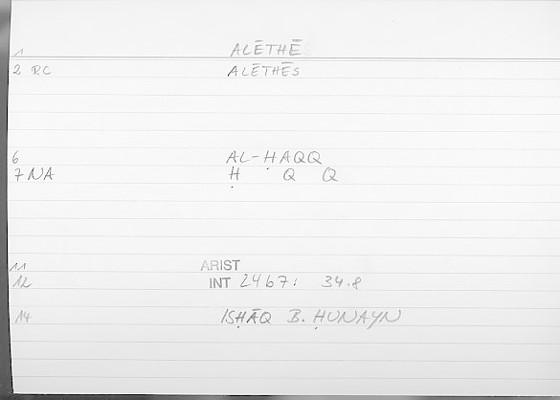 1 ALĒTHĒ
2 RC ALĒTHĒS
6 AL-ḤAQQ
7 NA Ḥ Q Q
11 ARIST
12 INT 2467: 34.8
14 ISḤĀQ B. ḤUNAYN